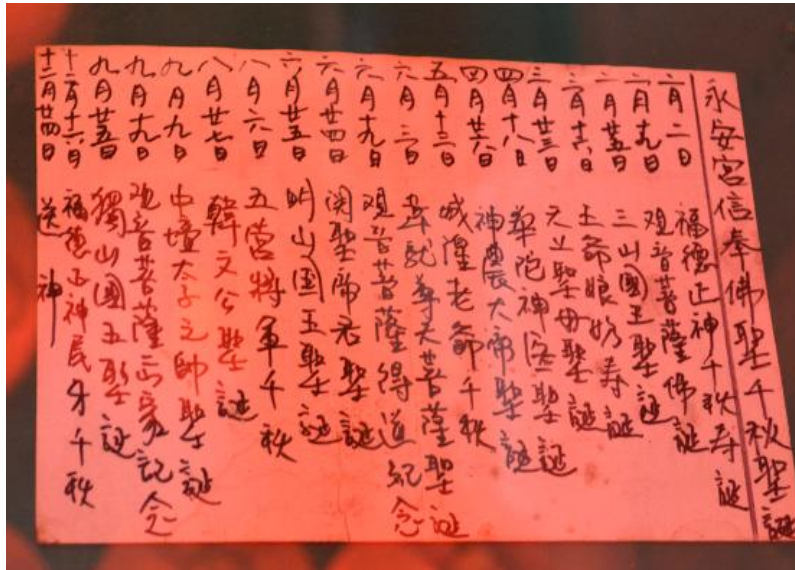 永安宮信奉佛聖千秋聖誕
二月二日 福德正神千秋寿誕
二月十九日 观音菩薩佛誕
二月廿五日 三山國王聖誕
王爺娘娘寿誕
三月廿三日 天上聖母聖誕
四月十八日 華陀神医聖誕
四月廿六日 神農大帝聖誕
五月十三日 城隍老爺千秋
六月三日 尊天菩薩聖誕
六月十九日 观音菩薩得道紀念
六月廿四日 関聖帝君聖誕
六月廿五日 明山国王聖誕
八月六日 五营将軍千秋
八月廿七日 韓文公聖誕
九月九日 中壇太子元帥聖誕
九月十九日 观音菩薩出家記念
九月廿五日 獨山國王聖誕
十二月十六日 福德正神民牙千秋
十二月廿四日 送神